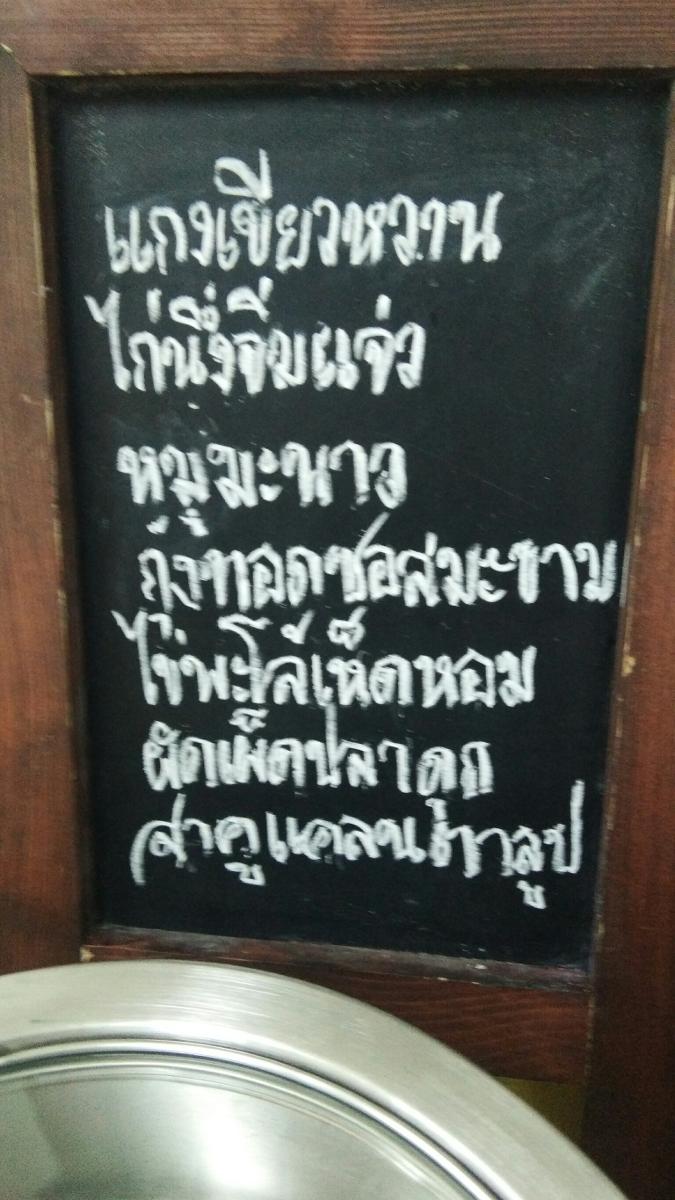 แกงเขียวหวาน
ไก่นึ่งจิ่มแจ่ว
หมูมะนาว
กุ้งทอดซอสมะขาม
ไข่พะโล้เห็ดหอม
ผัดเผ็ดปลาดุก
สาคูแคลนตาลูป